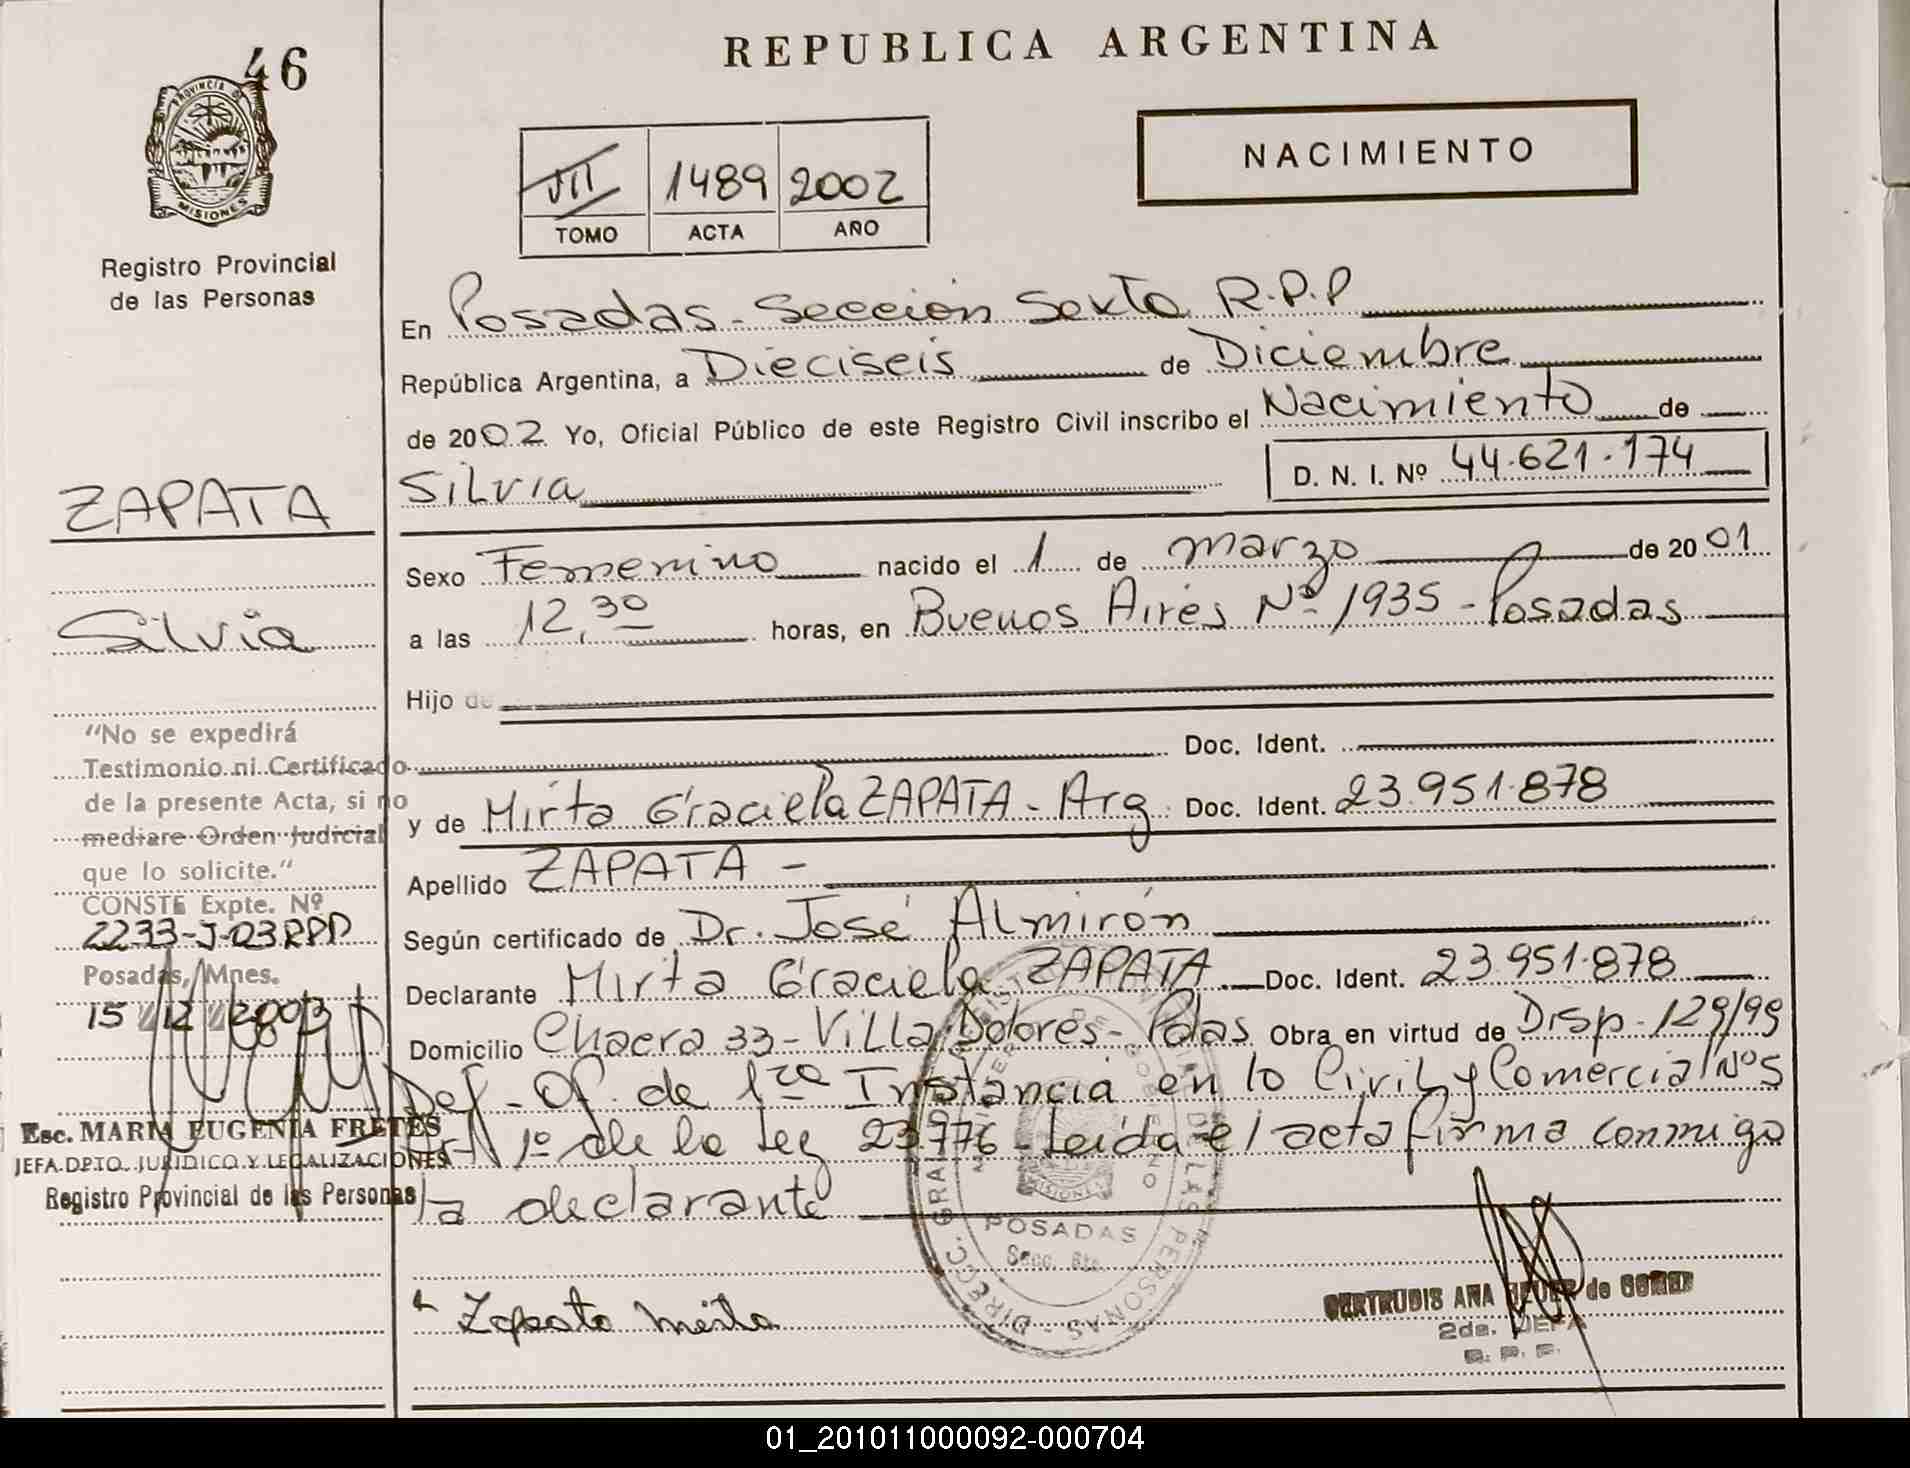 46
REPUBLICA ARGENTINA
PROVINCIA DE
MISIONES
Registro Provincial
de las Personas
VII 1489 2002
TOMO ACTA AÑO
NACIMIENTO
En Posadas - Sección Sexta R.P.P
República Argentina, a Dieciseis de Diciembre
de 2002 Yo, Oficial Público de este Registro Civil inscribo el Nacimiento de
Silvia D. N. I. Nº 44.621.174
Sexo Femenino nacido el 1 de marzo de 2001
a las 12,30 horas, en Buenos Aires Nº 1935 - Posadas
Hijo de
Doc. Ident.
y de Mirta Graciela ZAPATA - Arg. Doc. Ident. 23.951.878
Apellido ZAPATA -
Según certificado de Dr. José Almirón
Declarante Mirta Graciela ZAPATA Doc. Ident. 23.951.878
Domicilio Chacra 33 - Villa Dolores - Pdas Obra en virtud de Disp. 129/99
Def. Of. de 1ra Instancia en lo Civil y Comercial Nº 5
1º de la Ley 23776 - Leida el acta firma conmigo
la declarante
Zapata Mirta
ZAPATA
Silvia
"No se expedirá
Testimonio ni Certificado
de la presente Acta, si no
mediare Orden Judicial
que lo solicite."
CONSTE Expte. Nº
2233-J-03 RPP
Posadas, Mnes.
15 / 12 / 2003
Esc. MARIA EUGENIA FRETES
JEFA DPTO. JURIDICO Y LEGALIZACIONES
Registro Provincial de las Personas
POSADAS
Secc. 6ta.
MISIONES
GERTRUDIS ANA de GOMEZ
2da. JEFA
01_201011000092-000704